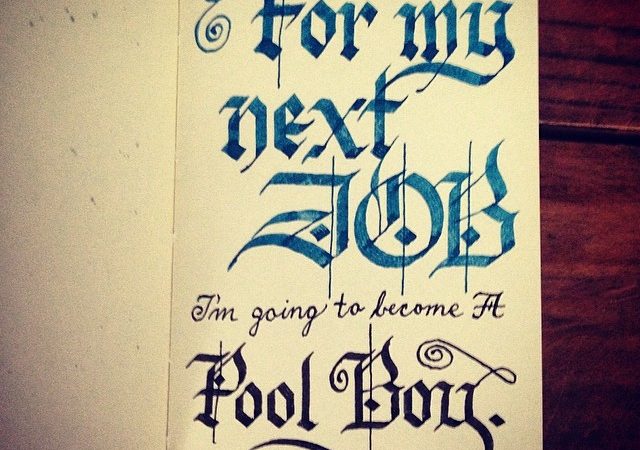 For my
next
JOB
I'm going to become A
Pool Boy.